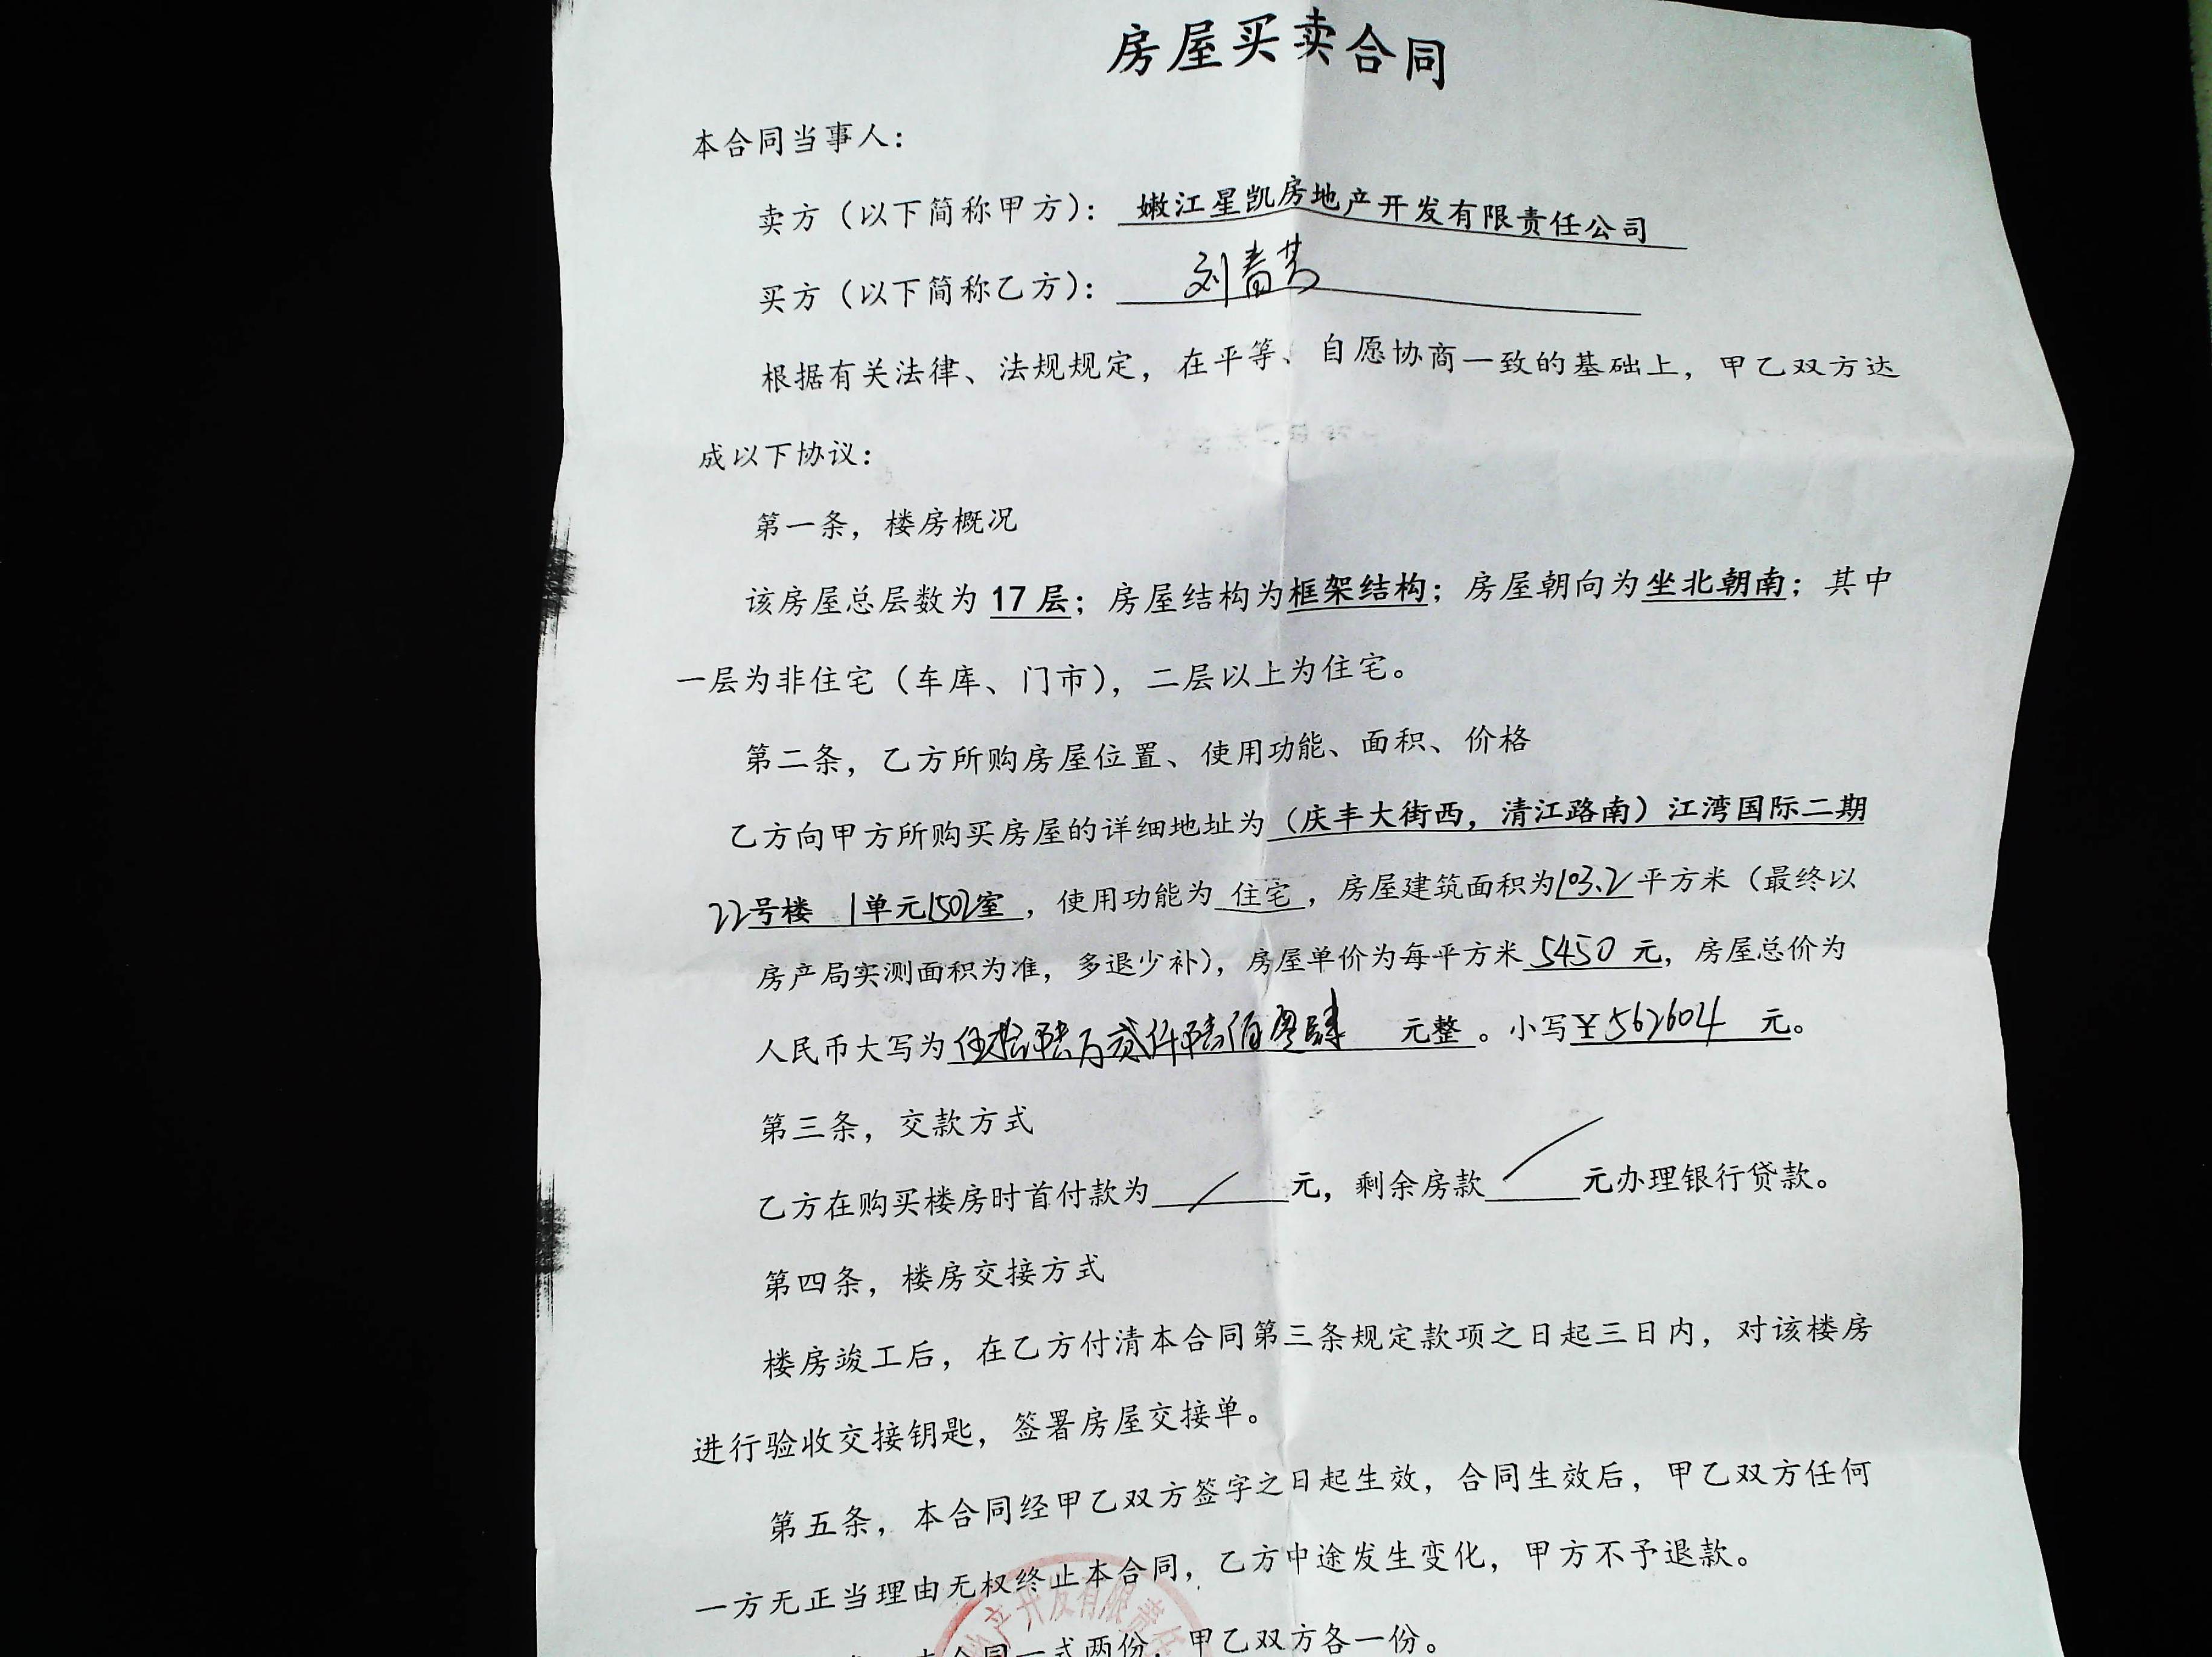 房屋买卖合同
本合同当事人：
卖方（以下简称甲方）：嫩江星凯房地产开发有限责任公司
买方（以下简称乙方）：刘春芳
根据有关法律、法规规定，在平等、自愿协商一致的基础上，甲乙双方达
成以下协议：
第一条，楼房概况
该房屋总层数为 17 层；房屋结构为框架结构；房屋朝向为坐北朝南；其中
一层为非住宅（车库、门市），二层以上为住宅。
第二条，乙方所购房屋位置、使用功能、面积、价格
乙方向甲方所购买房屋的详细地址为（庆丰大街西，清江路南）江湾国际二期
22号楼 1单元1502室，使用功能为 住宅，房屋建筑面积为103.2平方米（最终以
房产局实测面积为准，多退少补），房屋单价为每平方米 5450 元，房屋总价为
人民币大写为伍拾陆万贰仟陆佰零肆 元整。小写￥562604 元。
第三条，交款方式
乙方在购买楼房时首付款为 / 元，剩余房款 / 元办理银行贷款。
第四条，楼房交接方式
楼房竣工后，在乙方付清本合同第三条规定款项之日起三日内，对该楼房
进行验收交接钥匙，签署房屋交接单。
第五条，本合同经甲乙双方签字之日起生效，合同生效后，甲乙双方任何
一方无正当理由无权终止本合同，乙方中途发生变化，甲方不予退款。
产开发有限责任
本合同一式两份，甲乙双方各一份。